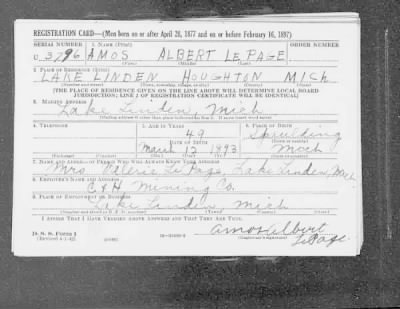 REGISTRATION CARD—(Men born on or after April 28, 1877 and on or before February 16, 1897)
SERIAL NUMBER 1. NAME (Print) ORDER NUMBER
U 3796 AMOS ALBERT LE PAGE
2. PLACE OF RESIDENCE (Print)
LAKE LINDEN HOUGHTON MICH
(Number and street) (Town, township, village, or city) (County) (State)
[THE PLACE OF RESIDENCE GIVEN ON THE LINE ABOVE WILL DETERMINE LOCAL BOARD
JURISDICTION; LINE 2 OF REGISTRATION CERTIFICATE WILL BE IDENTICAL]
3. MAILING ADDRESS
Lake Linden, Mich
[Mailing address if other than place indicated on line 2. If same insert word same]
4. TELEPHONE 5. AGE IN YEARS 6. PLACE OF BIRTH
49
DATE OF BIRTH (Town or county)
March 12 1893 Mich
(Exchange) (Number) (Mo.) (Day) (Yr.) (State or country)
7. NAME AND ADDRESS OF PERSON WHO WILL ALWAYS KNOW YOUR ADDRESS
Mrs Valerie Le Page, Lake Linden, Mich
8. EMPLOYER'S NAME AND ADDRESS
C & H Mining Co.
9. PLACE OF EMPLOYMENT OR BUSINESS
Lake Linden Mich
(Number and street or R. F. D. number) (Town) (County) (State)
I AFFIRM THAT I HAVE VERIFIED ABOVE ANSWERS AND THAT THEY ARE TRUE.
D. S. S. Form 1
(Revised 4-1-42)
Amos Albert
Le Page
(Registrant's signature)